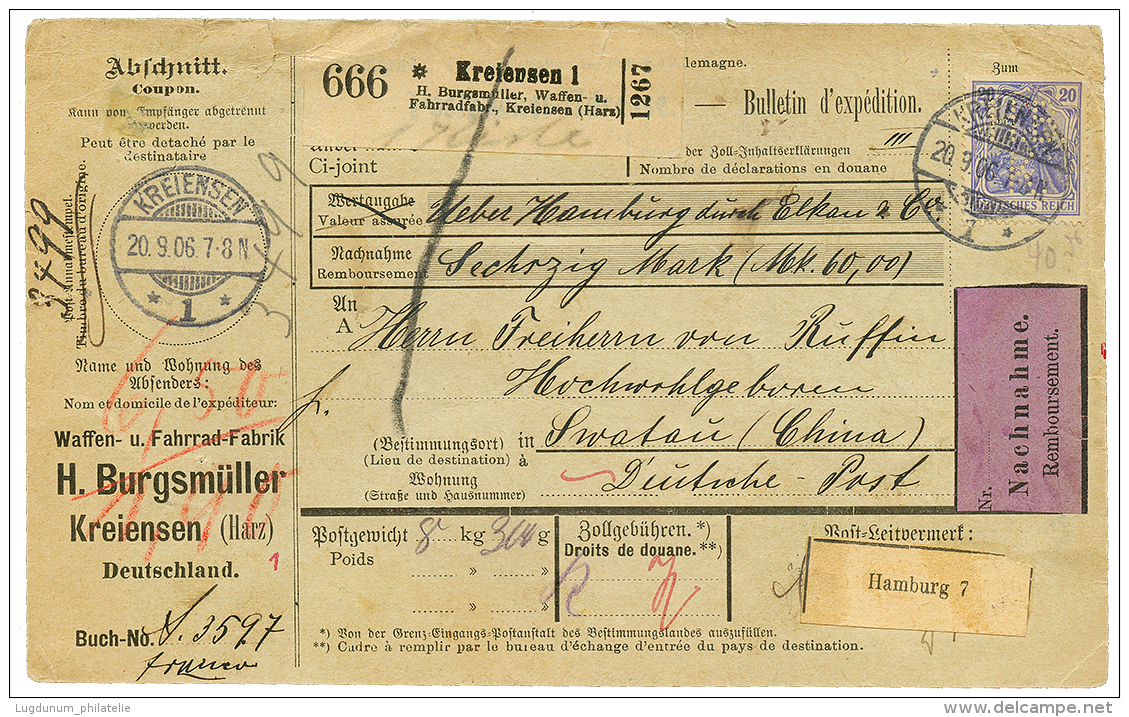 Abschnitt.
Coupon.
Kann vom Empfänger abgetrennt
werden.
Peut être detaché par le
destinataire
Post-Annahmestempel.
Timbre du bureau d'origine.
3499
3499
KREIENSEN
20.9.06.7-8N
* 1 *
Name und Wohnung des
Absenders:
Nom et domicile de l'expéditeur:
6,50
Waffen- u. Fahrrad-Fabrik
H. Burgsmüller
Kreiensen (Harz)
Deutschland.
1
Buch-No. S. 3597
franco
666
* Kreiensen 1
H. Burgsmüller, Waffen- u.
Fahrradfabr., Kreiensen (Harz)
1267
1 Kiste
lemagne.
— Bulletin d'expédition.
Ci-joint
der Zoll-Inhaltserklärungen
Nombre de déclarations en douane
III
Wertangabe
Valeur assurée
Ueber Hamburg durch Elkan & Co
Nachnahme
Remboursement
Sechszig Mark (Mk. 60,00)
An
A
Herrn Freiherrn von Ruffin
Hochwohlgeboren
(Bestimmungsort) in
(Lieu de destination) à
Swatau (China)
Wohnung
(Straße und Hausnummer)
Deutsche-Post
Zum
20
20
KREIENSEN
20.9.06.7-8N
1 *
DEUTSCHES REICH
40
Nr.
Nachnahme.
Remboursement.
Postgewicht 8 kg 300 g
Poids
» »
» »
Zollgebühren. *)
Droits de douane. **)
Post-Leitvermerk:
Hamburg 7
*) Von der Grenz-Eingangs-Postanstalt des Bestimmungslandes auszufüllen.
**) Cadre à remplir par le bureau d'échange d'entrée du pays de destination.
Lugdunum_philatelie
delcampe.net